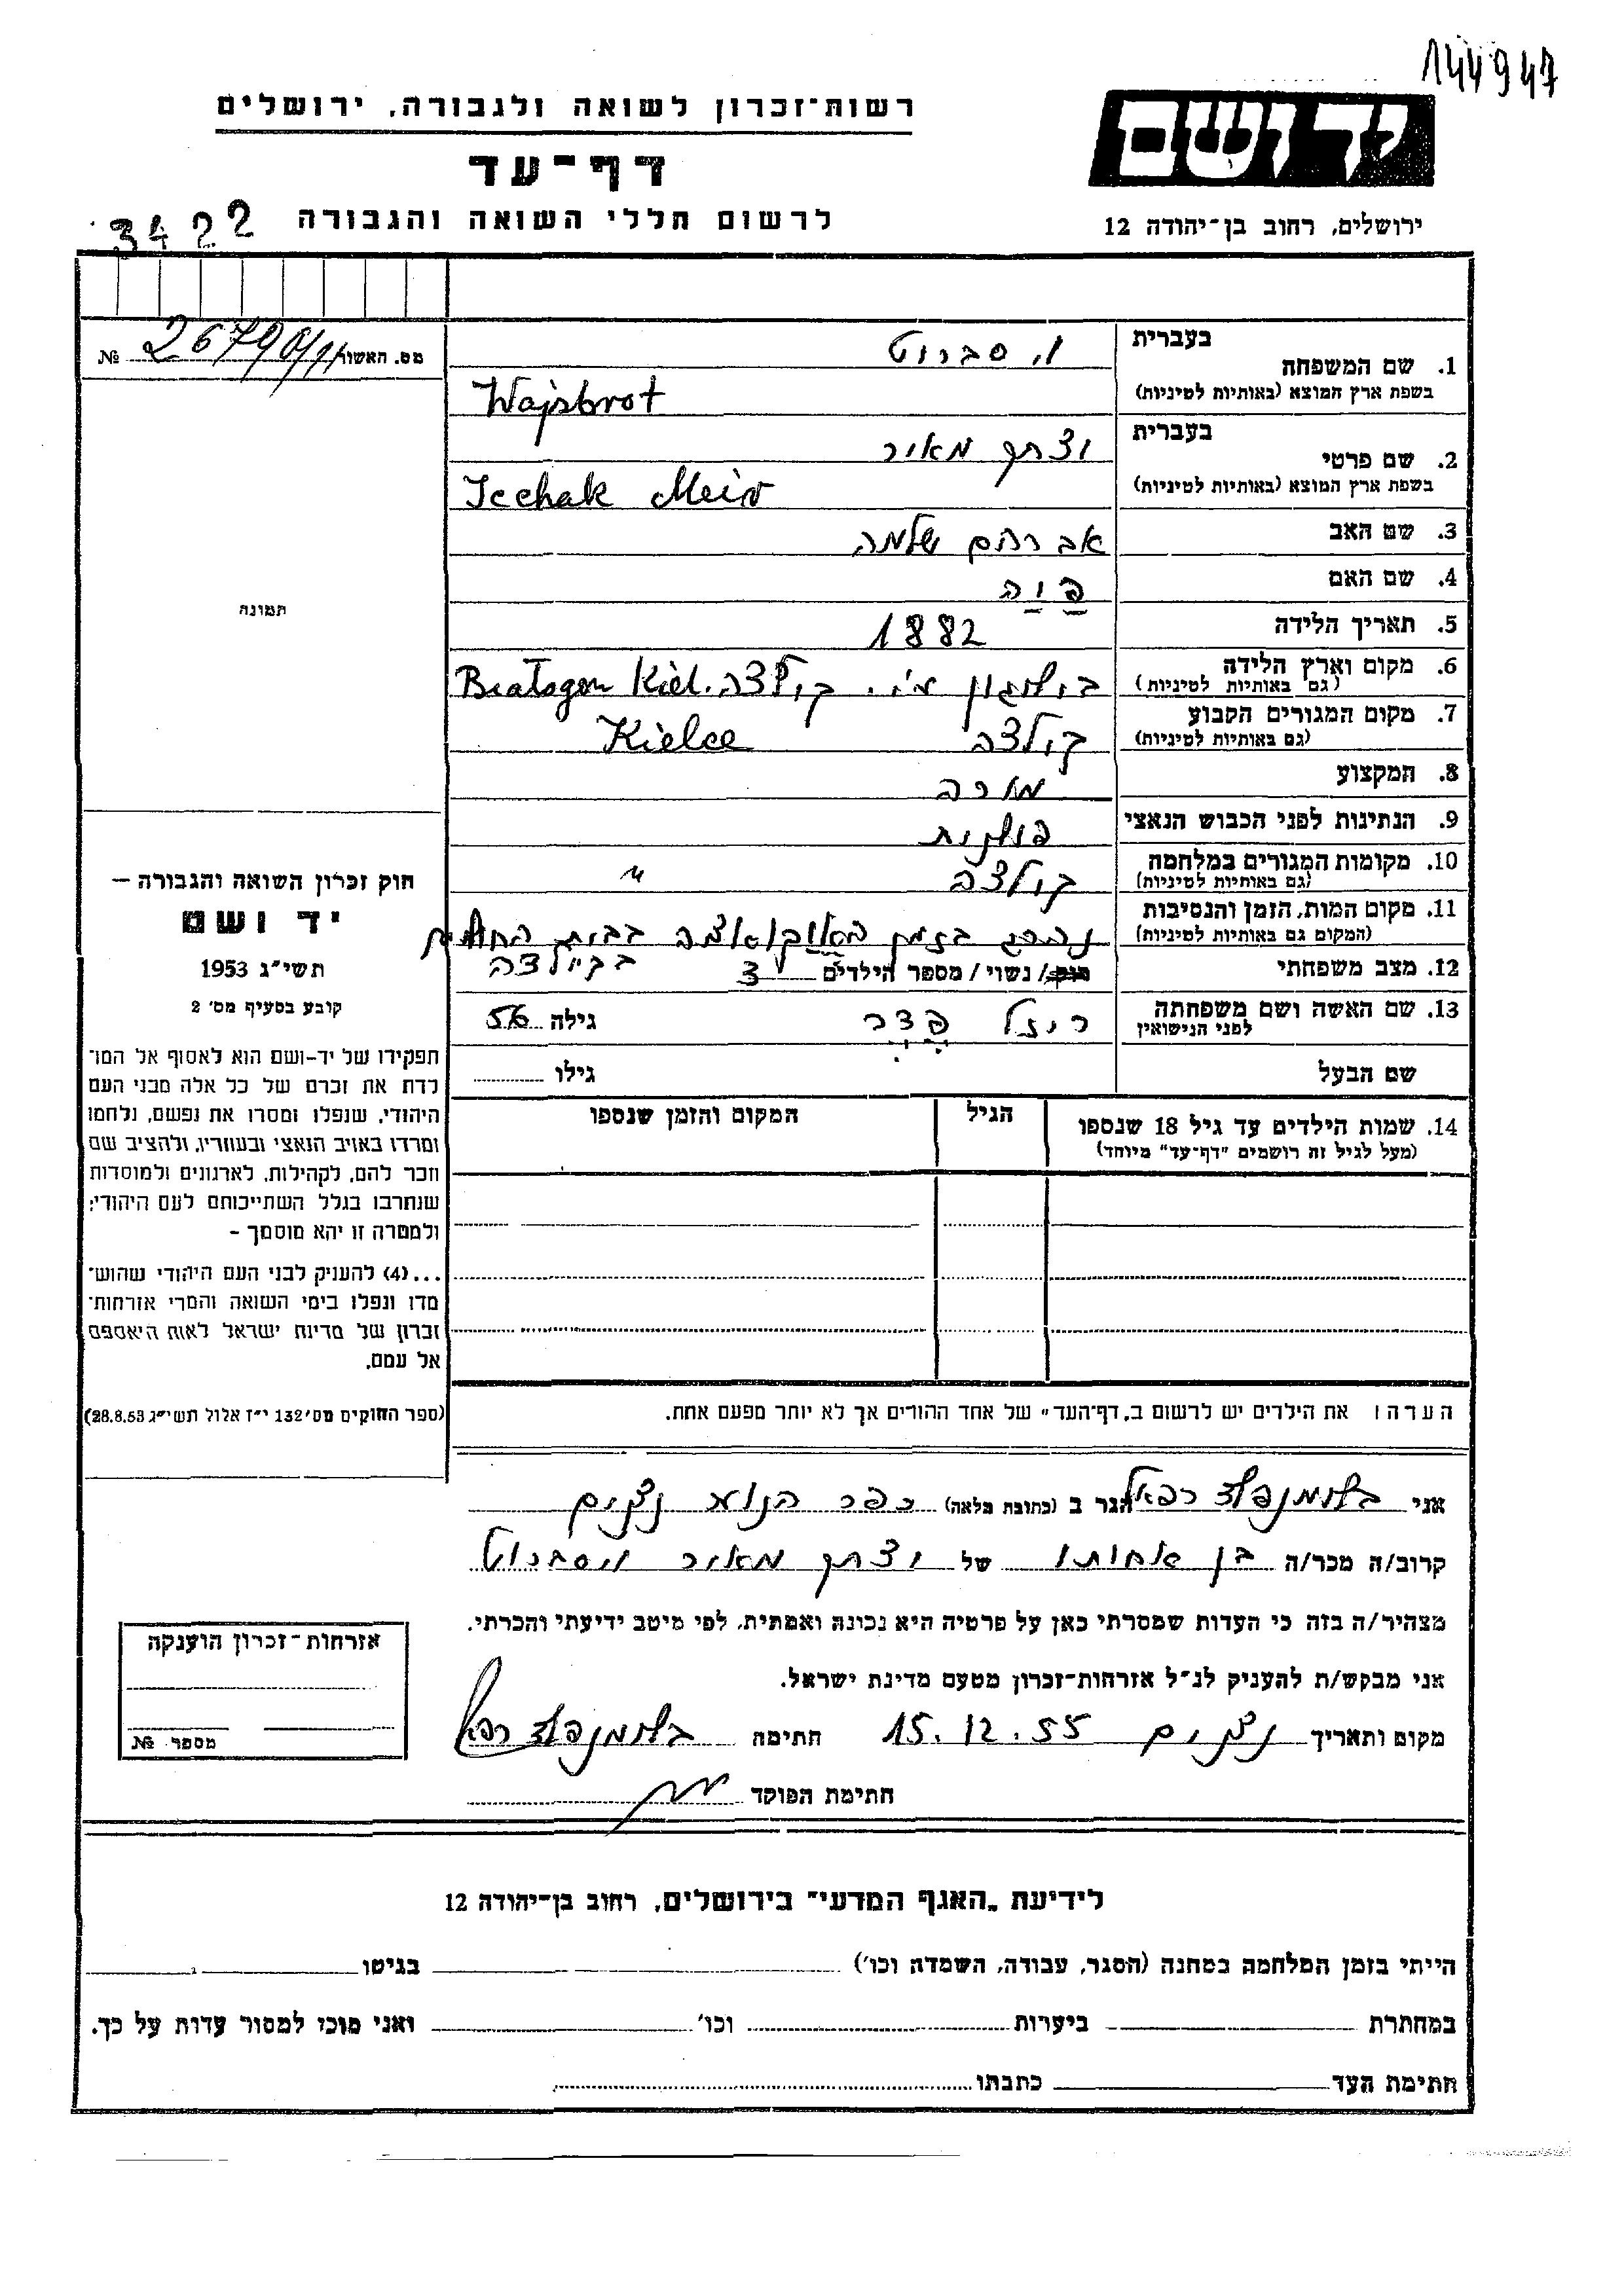 144947
רשות־זכרון לשואה ולגבורה, ירושלים
יד ושם
דף־עד
לרשום חללי השואה והגבורה
ירושלים, רחוב בן־יהודה 12
3422
מס. האשור 26790/11 №
בעברית
1. שם המשפחה
בשפת ארץ המוצא (באותיות לטיניות)
ו. סברוט
Wajsbrot
בעברית
2. שם פרטי
בשפת ארץ המוצא (באותיות לטיניות)
יצחק מאיר
Icchak Meir
3. שם האב אברהם שלמה
4. שם האם פיה
5. תאריך הלידה 1882
6. מקום וארץ הלידה
(גם באותיות לטיניות)
קילצה. Kiel
7. מקום המגורים הקבוע
(גם באותיות לטיניות)
קילצה Kielce
8. המקצוע מורה
9. הנתינות לפני הכבוש הנאצי פולנית
10. מקומות המגורים במלחמה
(גם באותיות לטיניות)
קילצה "
11. מקום המות, הזמן והנסיבות
(המקום גם באותיות לטיניות)
נהרג בזמן האוקופציה בבית החולים
בקילצה
12. מצב משפחתי רווק / נשוי / מספר הילדים 3
13. שם האשה ושם משפחתה
לפני הנישואין
ריזל פצר גילה 56
שם הבעל גילו
14. שמות הילדים עד גיל 18 שנספו הגיל המקום והזמן שנספו
(מעל לגיל זה רושמים "דף־עד" מיוחד)
תמונה
חוק זכרון השואה והגבורה –
יד ושם
תשי"ג 1953
קובע בסעיף מס׳ 2
תפקידו של יד־ושם הוא לאסוף אל המו־
לדת את זכרם של כל אלה מבני העם
היהודי, שנפלו ומסרו את נפשם, נלחמו
ומרדו באויב הנאצי ובעוזריו, ולהציב שם
וזכר להם, לקהילות, לארגונים ולמוסדות
שנחרבו בגלל השתייכותם לעם היהודי;
ולמטרה זו יהא מוסמך –
...(4) להעניק לבני העם היהודי שהוש־
מדו ונפלו בימי השואה והמרי אזרחות־
זכרון של מדינת ישראל לאות היאספם
אל עמם.
(ספר החוקים מס׳ 132 י"ז אלול תשי"ג 28.8.53)
הערה: את הילדים יש לרשום ב„דף־העד" של אחד ההורים אך לא יותר מפעם אחת.
אני בלומנפלד רפאל הגר ב (כתובת מלאה) כפר הנוער ניצנים
קרוב/ה מכר/ה בן אחותו של יצחק מאיר וייסברוט
מצהיר/ה בזה כי העדות שמסרתי כאן על פרטיה היא נכונה ואמתית, לפי מיטב ידיעתי והכרתי.
אני מבקש/ת להעניק לנ"ל אזרחות־זכרון מטעם מדינת ישראל.
מקום ותאריך ניצנים 15.12.55 חתימה בלומנפלד רפאל
חתימת הפוקד
אזרחות־זכרון הוענקה
מספר №
לידיעת „האגף המדעי" בירושלים, רחוב בן־יהודה 12
הייתי בזמן המלחמה במחנה (הסגר, עבודה, השמדה וכו׳) בגיטו
במחתרת ביערות וכו׳ ואני מוכן למסור עדות על כך.
חתימת העד כתבתו